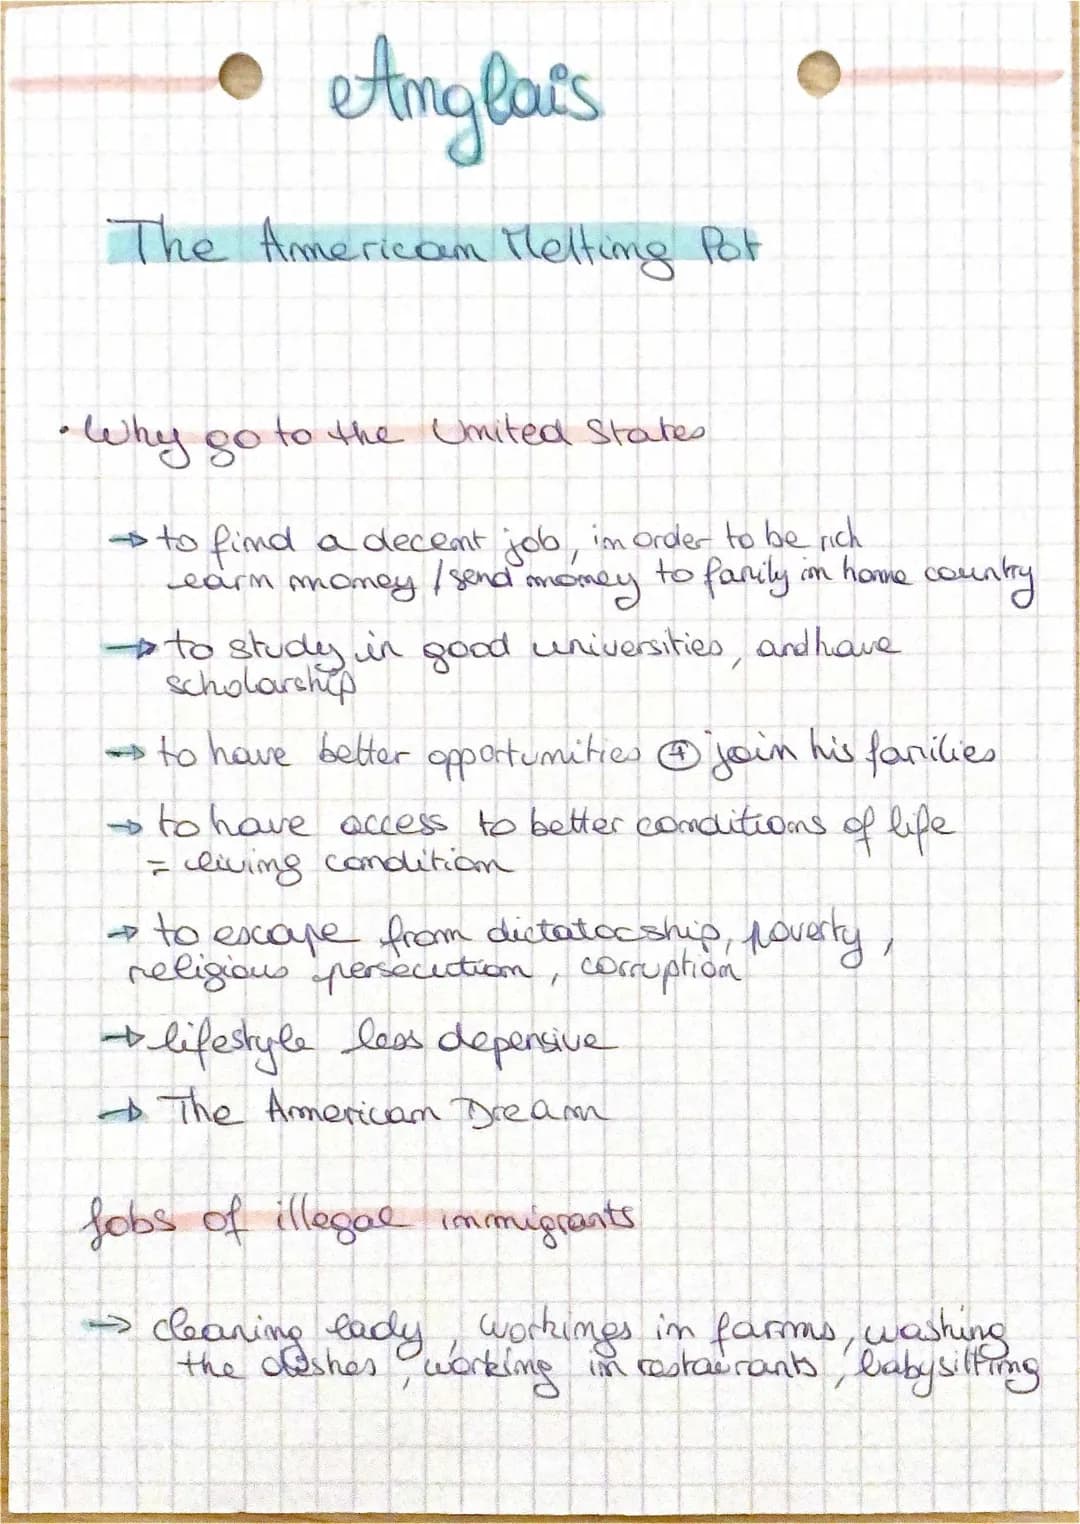 Anglais
The American Melting Pot
• Why go to the United States
→ to find a decent job, in order to be rich
earn money / send money to family in home country
→ to study in good universities, and have
scholarship
→ to have better opportunities ⊕ join his families
→ to have access to better conditions of life
= living condition
→ to escape from dictatorship, poverty,
religious persecution, corruption
→ lifestyle less depensive
→ The American Dream
Jobs of illegal immigrants
→ cleaning lady, workings in farms, washing
the dishes, working in restaurants, babysitting